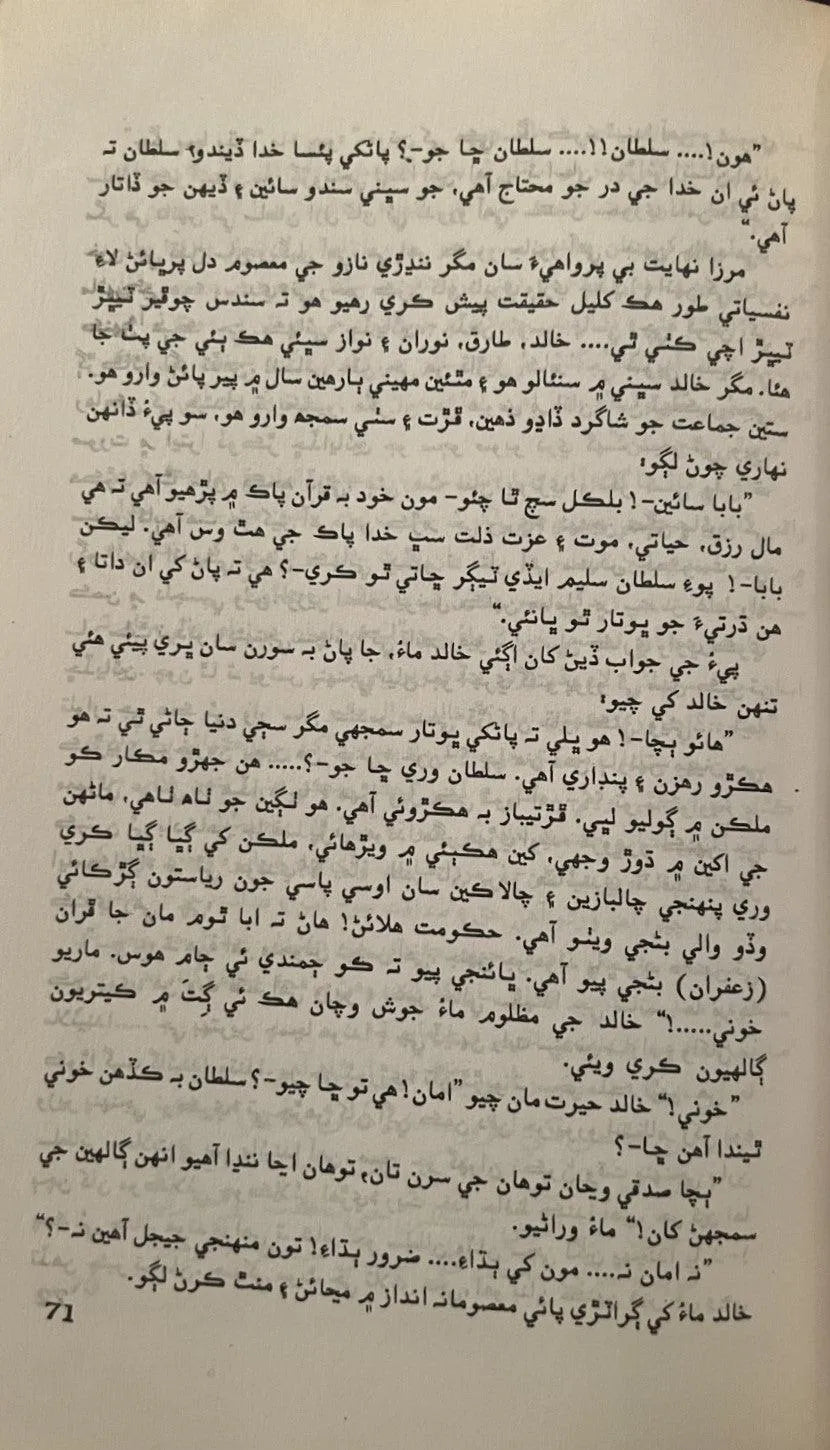 ”هون!.... سلطان!!.... سلطان ڇا جو-؟ پاڻکي پئسا خدا ڏيندو؟ سلطان تہ
پاڻ ئي ان خدا جي در جو محتاج آهي، جو سڀني سندو سائين ۽ ڏيهن جو ڏاتار
آهي.“
مرزا نهايت بي پرواهيءَ سان مگر ننڍڙي نازو جي معصوم دل پرڀائڻ لاءِ
نفسياتي طور هڪ کليل حقيقت پيش ڪري رهيو هو تہ سندس چوڦير ٽيڙ
ٽيڙ اچي ڪئي ٿي.... خالد، طارق، نوران ۽ نواز سڀئي هڪ ٻئي جي پٺ جا
هئا. مگر خالد سڀني ۾ سنئالو هو ۽ مٿئين مهيني ٻارهين سال ۾ پير پائڻ وارو هو.
ستين جماعت جو شاگرد ڏاڍو ذهين، ڦڙت ۽ سٺي سمجھ وارو هو، سو پيءُ ڏانهن
نهاري چوڻ لڳو؛
”بابا سائين-! بلڪل سچ ٿا چئو- مون خود بہ قرآن پاڪ ۾ پڙهيو آهي تہ هي
مال رزق، حياتي، موت ۽ عزت ذلت سڀ خدا پاڪ جي هٿ وس آهي. ليڪن
بابا-! پوءِ سلطان سليم ايڏي ٽيڳر ڇاتي ٿو ڪري-؟ هي تہ پاڻ کي ان داتا ۽
هن ڌرتيءَ جو ڀوتار ٿو ڀانئي.“
پيءُ جي جواب ڏيڻ کان اڳئي خالد ماءُ، جا پاڻ بہ سورن سان ڀري پيئي هئي
تنهن خالد کي چيو؛
”هائو ٻچا-! هو ڀلي تہ پاڻکي ڀوتار سمجهي مگر سڄي دنيا ڄاڻي ٿي تہ هو
هڪڙو رهزن ۽ پنڊاري آهي. سلطان وري ڇا جو-؟..... هن جهڙو مڪار ڪو
ملڪن ۾ ڳوليو لڀي. ڦڙتيباز بہ هڪڙوئي آهي. هو ٺڳين جو ٺاھ ٺاهي، ماڻهن
جي اکين ۾ ڌوڙ وجهي، کين هڪٻئي ۾ ويڙهائي، ملڪن کي ڳيا ڳيا ڪري
وري پنهنجي چالبازين ۽ چالاڪين سان اوسي پاسي جون رياستون ڳڙڪائي
وڏو والي بڻجي ويٺو آهي. حڪومت هلائڻ! هاڻ تہ ابا ٿوم مان جا ڦران
(زعفران) بڻجي پيو آهي. ڀائنجي پيو تہ ڪو ڄمندي ئي ڄام هوس. ماريو
خوني.....!“ خالد جي مظلوم ماءُ جوش وچان هڪ ئي ڳِٽَ ۾ ڪيتريون
ڳالهيون ڪري ويئي.
”خوني!“ خالد حيرت مان چيو ”امان! هي تو ڇا چيو-؟ سلطان بہ ڪڏهن خوني
ٿيندا آهن ڇا-؟
”ٻچا صدقي ويڃان توهان جي سرن تان، توهان اڃا ننڍا آهيو انهن ڳالهين جي
سمجهڻ کان!“ ماءُ وراڻيو.
”نہ امان نہ.... مون کي ٻڌاءِ.... ضرور ٻڌاءِ! تون منهنجي جيجل آهين نہ-؟“
خالد ماءُ کي ڳراٽڙي پائي معصومانہ انداز ۾ ميڃائڻ ۽ منٿ ڪرڻ لڳو.
71